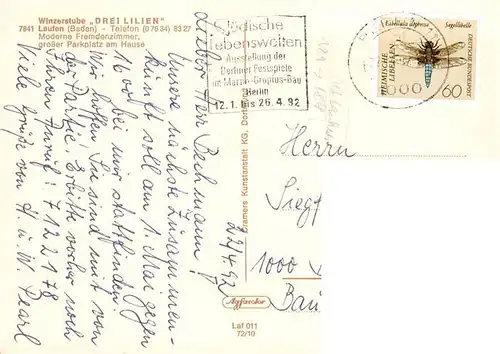 Winzerstube „DREI LILIEN"
7841 Laufen (Baden) - Telefon (07634) 8327
Moderne Fremdenzimmer,
großer Parkplatz am Hause
Lieber Herr Bechmann!
Unsere nächste Zusammen-
kunft soll am 1. Mai gegen
16 Uhr bei mir stattfinden.
Wir hoffen Sie sind mit von
der Partie. Erbitte vorher noch
Ihren Anruf: 7 12 2 81
Viele Grüße von H. u. W. Pearl
22/4.92
Jüdische
Lebenswelten
Ausstellung der
Berliner Festspiele
im Martin-Gropius-Bau
Berlin
12.1. bis 26.4.92
Segellibelle
HEIMISCHE
LIBELLEN
DEUTSCHE BUNDESPOST
60
Herrn
Siegf
1000
Bau
Cramers Kunstanstalt KG, Dortm
Agfacolor
Laf 011
72/10